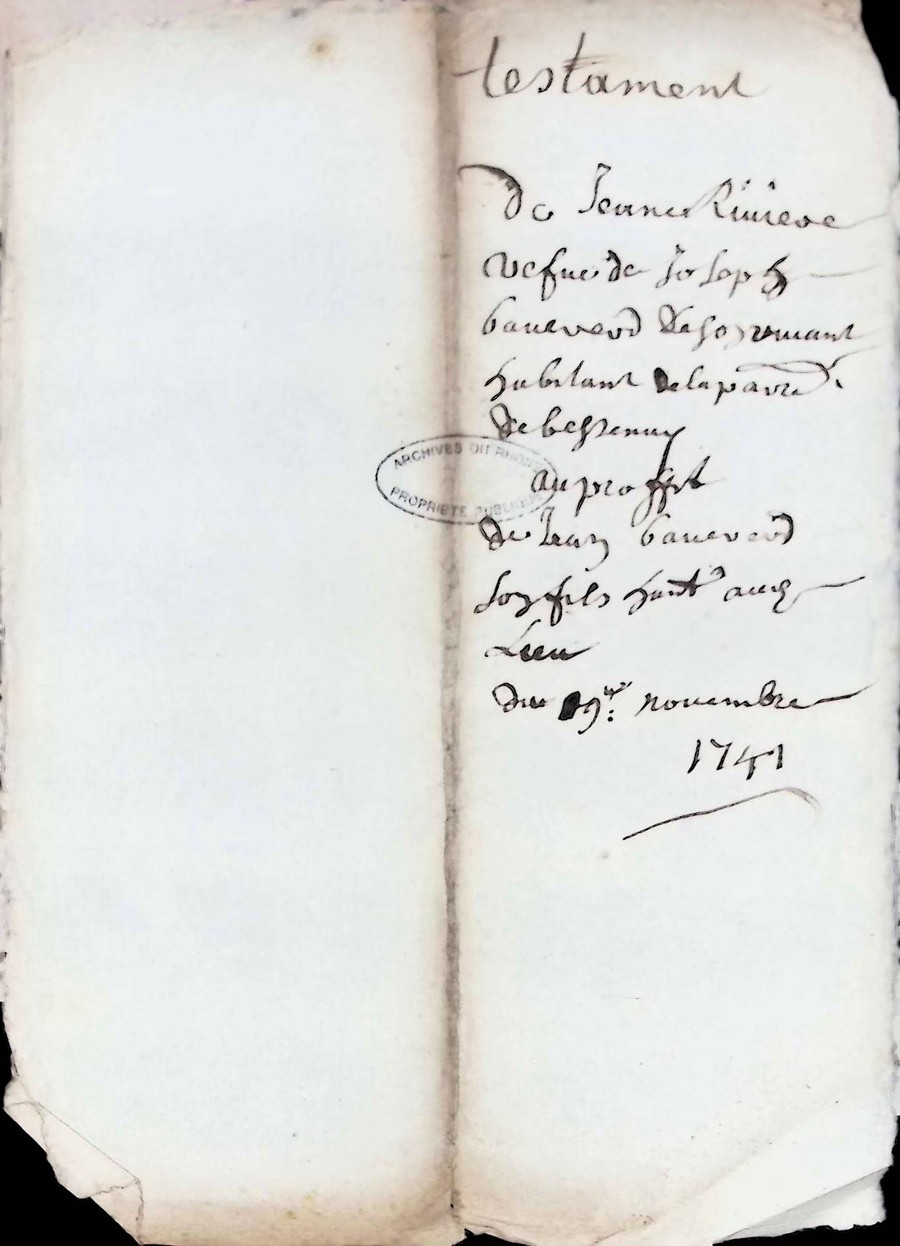 testament
de Jeanne Riuiere
vefue de Joseph
baueverd
habitant de la parre
de bessenay
au proffit
de Jean baueverd
son fils hant aud
Lieu
du 19: novembre
1741
ARCHIVES DU RHONE
PROPRIETE PUBLIQUE